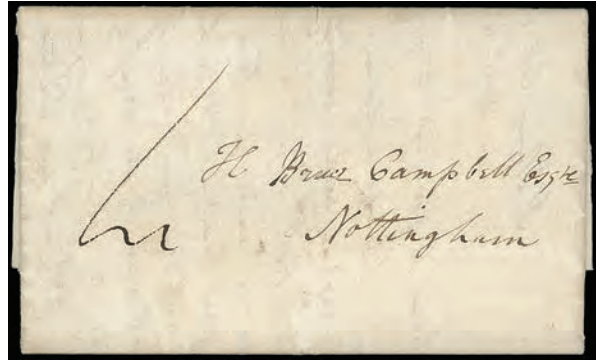 H Bruce Campbell Esqre
Nottingham